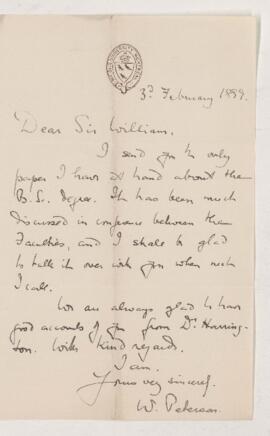 3rd February 1899.
Dear Sir William,
I send you the only
paper I have at hand about the
B.Sc. degree. It has been much
discussed in conference between the
Faculties, and I shall be glad
to talk it over with you when next
I call.
We are always glad to have
good accounts of you from Dr. Harring-
ton. With kind regards.
I am.
Yours very sincerely.
W. Peterson.